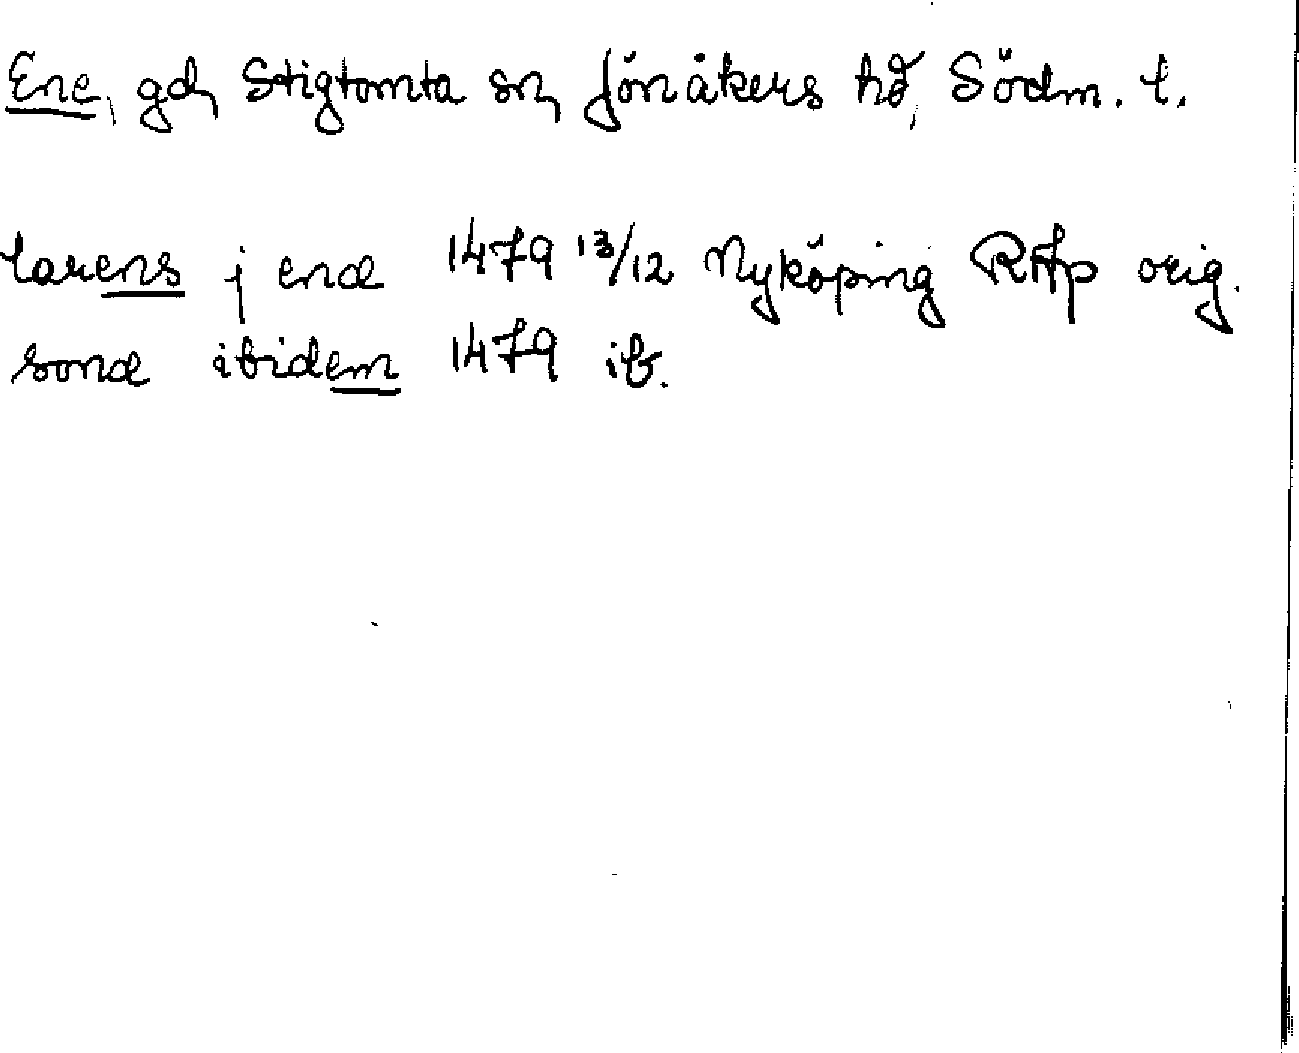 Ene, gd, Stigtomta sn, Jönåkers hd, Södm. l.
larens j enæ 1479 13/12 Nyköping RAp orig.
sonæ ibidem 1479 ib.